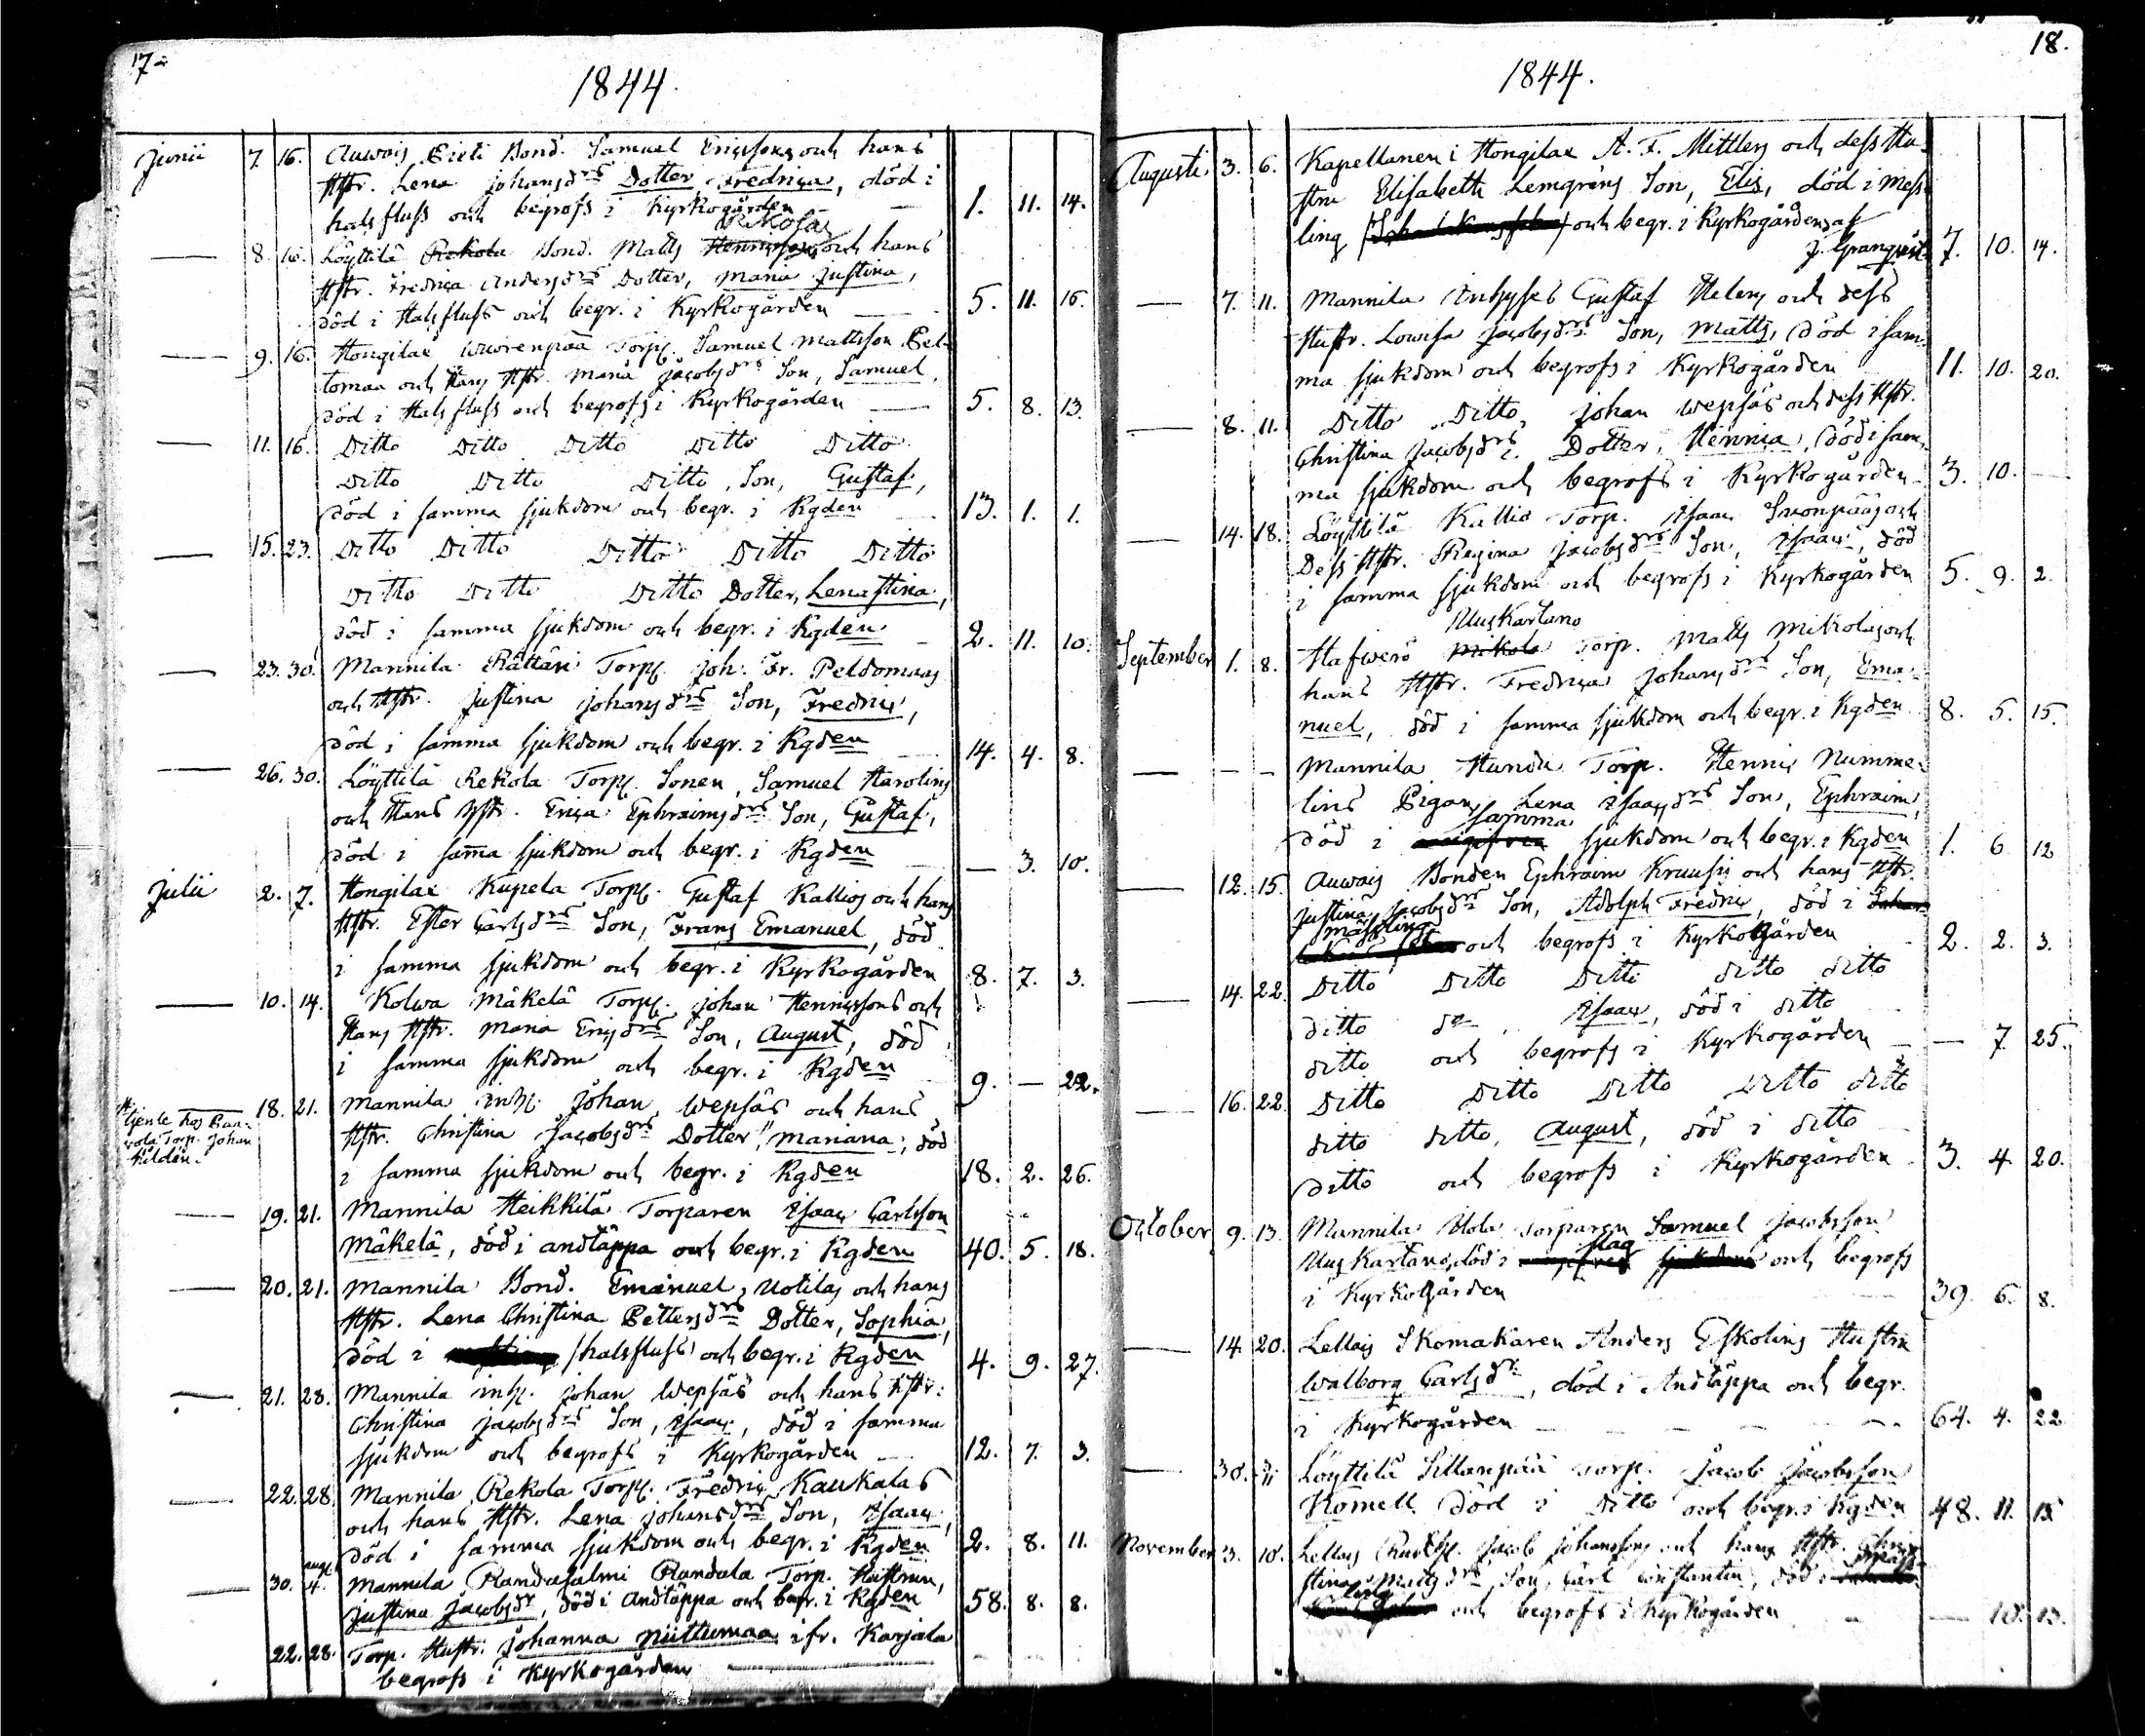 17
1844.
Junii 7. 16. Auwais Pieti Bond. Samuel Ericssons och hans
Hstr. Lena Johansdrs Dotter Fredrica, död i
halsfluss och begrofs i Kyrkogården — 1. 11. 14.
Rekolas
— 8. 16. Löyttilä Rekola Bond. Matts och hans
Hstr. Fredrica Andersdrs Dotter, Maria Justina,
död i Halsfluss och begr. i Kyrkogården — 5. 11. 16.
— 9. 16. Hongilax Torp. Samuel Mattsson Pel-
tomaa och Hans Hstr. Maria Jacobsdrs Son, Samuel,
död i Halsfluss och begrofs i Kyrkogården — 5. 8. 13.
— 11. 16. Ditto Ditto Ditto Ditto Ditto
Ditto Ditto Ditto, Son, Gustaf,
död i samma sjukdom och begr. i Kgden 13. 1. 1.
— 15. 23. Ditto Ditto Ditto Ditto Ditto
Ditto Ditto Ditto Dotter, Lenastina,
död i samma sjukdom och begr. i Kgden 2. 11. 10.
— 23. 30. Mannila Rättäri Torp. Joh. Fr. Peldomaas
och Hstr. Justina Johansdrs Son, Fredric,
död i samma sjukdom och begr. i Kgden 14. 4. 8.
— 26. 30. Löyttilä Rekola Torp. Sonen, Samuel Harolins
och Hans Hstr. Erica Ephraimsdrs Son, Gustaf,
död i sama sjukdom och begr. i Kgden — 3. 10.
Julii 2. 7. Hongilax Kupela Torp. Gustaf Kallios och hans
Hstr. Ester Carlsdrs Son, Frans Emanuel, död
i samma sjukdom och begr. i Kyrkogården 8. 7. 3.
— 10. 14. Kolwa Mäkelä Torp. Johan Henricssons och
Hans Hstr. Maria Ericsdrs Son, August, död
i samma sjukdom och begr. i Kgden 9. — 22.
tjente hos
Torp. Johan
18. 21. Mannila inh. Johan Wepsäs och hans
Hstr. Christina Jacobsdrs Dotter Mariana, död
i samma sjukdom och begr. i Kgden 18. 2. 26.
— 19. 21. Mannila Heikkilä Torparen Isaac Carlsson
Mäkelä, död i andtäppa och begr. i Kgden 40. 5. 18.
— 20. 21. Mannila Bond. Emanuel Uotilas och hans
Hstr. Lena Christina Pettersdrs Dotter, Sophia,
död i halsfluss och begr. i Kgden 4. 9. 27.
— 21. 28. Mannila inh. Johan Wepsäs och hans Hstr.
Christina Jacobsdrs Son, Isaac, död i samma
sjukdom och begrofs i Kyrkogården — 12. 7. 3.
— 22. 28. Mannila Rekola Torp. Fredric Kaukalas
och hans Hstr. Lena Johansdrs Son, Isaac,
död i samma sjukdom och begr. i Kgden 2. 8. 11.
aug.
— 30. 4. Mannila Randasalmi Randala Torp. Hustrun,
Justina Jacobsdr, död i andtäppa och begr. i Kgden 58. 8. 8.
22. 28. Torp. Hustr. Johanna Niittumaa ifr. Karjala
begrofs i Kyrkogården —
18.
1844.
Augusti 3. 6. Kapellanen i Hongilax A. F. Mittlers och dess Hu-
stru Elisabeth Lemgrens Son, Elis, död i Mess-
ling och begr. i Kyrkogården af
J. Granqvist 7. 10. 14.
— 7. 11. Mannila Inhyses Gustaf Helens och dess
Hustr. Lowisa Jacobsdrs Son, Matts, död i sam-
ma sjukdom och begrofs i Kyrkogården 11. 10. 20.
— 8. 11. Ditto Ditto Johan Wepsäs och dess Hstr.
Christina Jacobsdrs Dotter, Henrica, död i sam-
ma sjukdom och begrofs i Kyrkogården 3. 10. —
— 14. 18. Löyttilä Kallio Torp. Isaac Suonpääs och
Dess Hstr. Regina Jacobsdrs Son, Isaac, död
i samma sjukdom och begrofs i Kyrkogården 5. 9. 2.
Uuskartano
September 1. 8. Hafwerö Mikola Torp. Matts Mikolas och
hans Hstr. Fredrica Johansdrs Son, Ema-
nuel, död i samma sjukdom och begr. i Kgden 8. 5. 15.
— — — Mannila Hundu Torp. Henric Numme-
lins Pigan Lena Isaacsdrs Son, Ephraim,
samma
död i sjukdom och begr. i Kgden 1. 6. 12
— 12. 15. Auwais Bonden Ephraim Kruusis och hans Hstr.
Justina Jacobsdrs Son, Adolph Fredric, död i
mässling
och begrofs i Kyrkogården 2. 2. 3.
— 14. 22. Ditto Ditto Ditto ditto ditto
ditto do, Isaac, död i ditto
ditto och begrofs i Kyrkogården — — 7. 25.
— 16. 22. Ditto Ditto Ditto Ditto ditto
ditto ditto, August, död i ditto
ditto och begrofs i Kyrkogården 3. 4. 20.
October 9. 13. Mannila Torparen Samuel Jacobsson
slag
Uuskartano, död i sjukdom och begrofs
i Kyrkogården 39. 6. 8.
— 14. 20. Lellais Skomakaren Anders Eskolins Hustru
Walborg Carlsdr, död i Andtäppa och begr.
i Kyrkogården — 64. 4. 22
— 30. Löyttilä Sillanpää Torp. Jacob Jacobsson
Kömell död i Ditto och begr. i Kgden 48. 11. 15
November 3. 10. Lellais Jacob Johanssons och hans Hstr. Chri-
stina Mattsdrs Son, Carl Constantin, död i Mäss-
ling
och begrofs i Kyrkogården — — 10. 13.